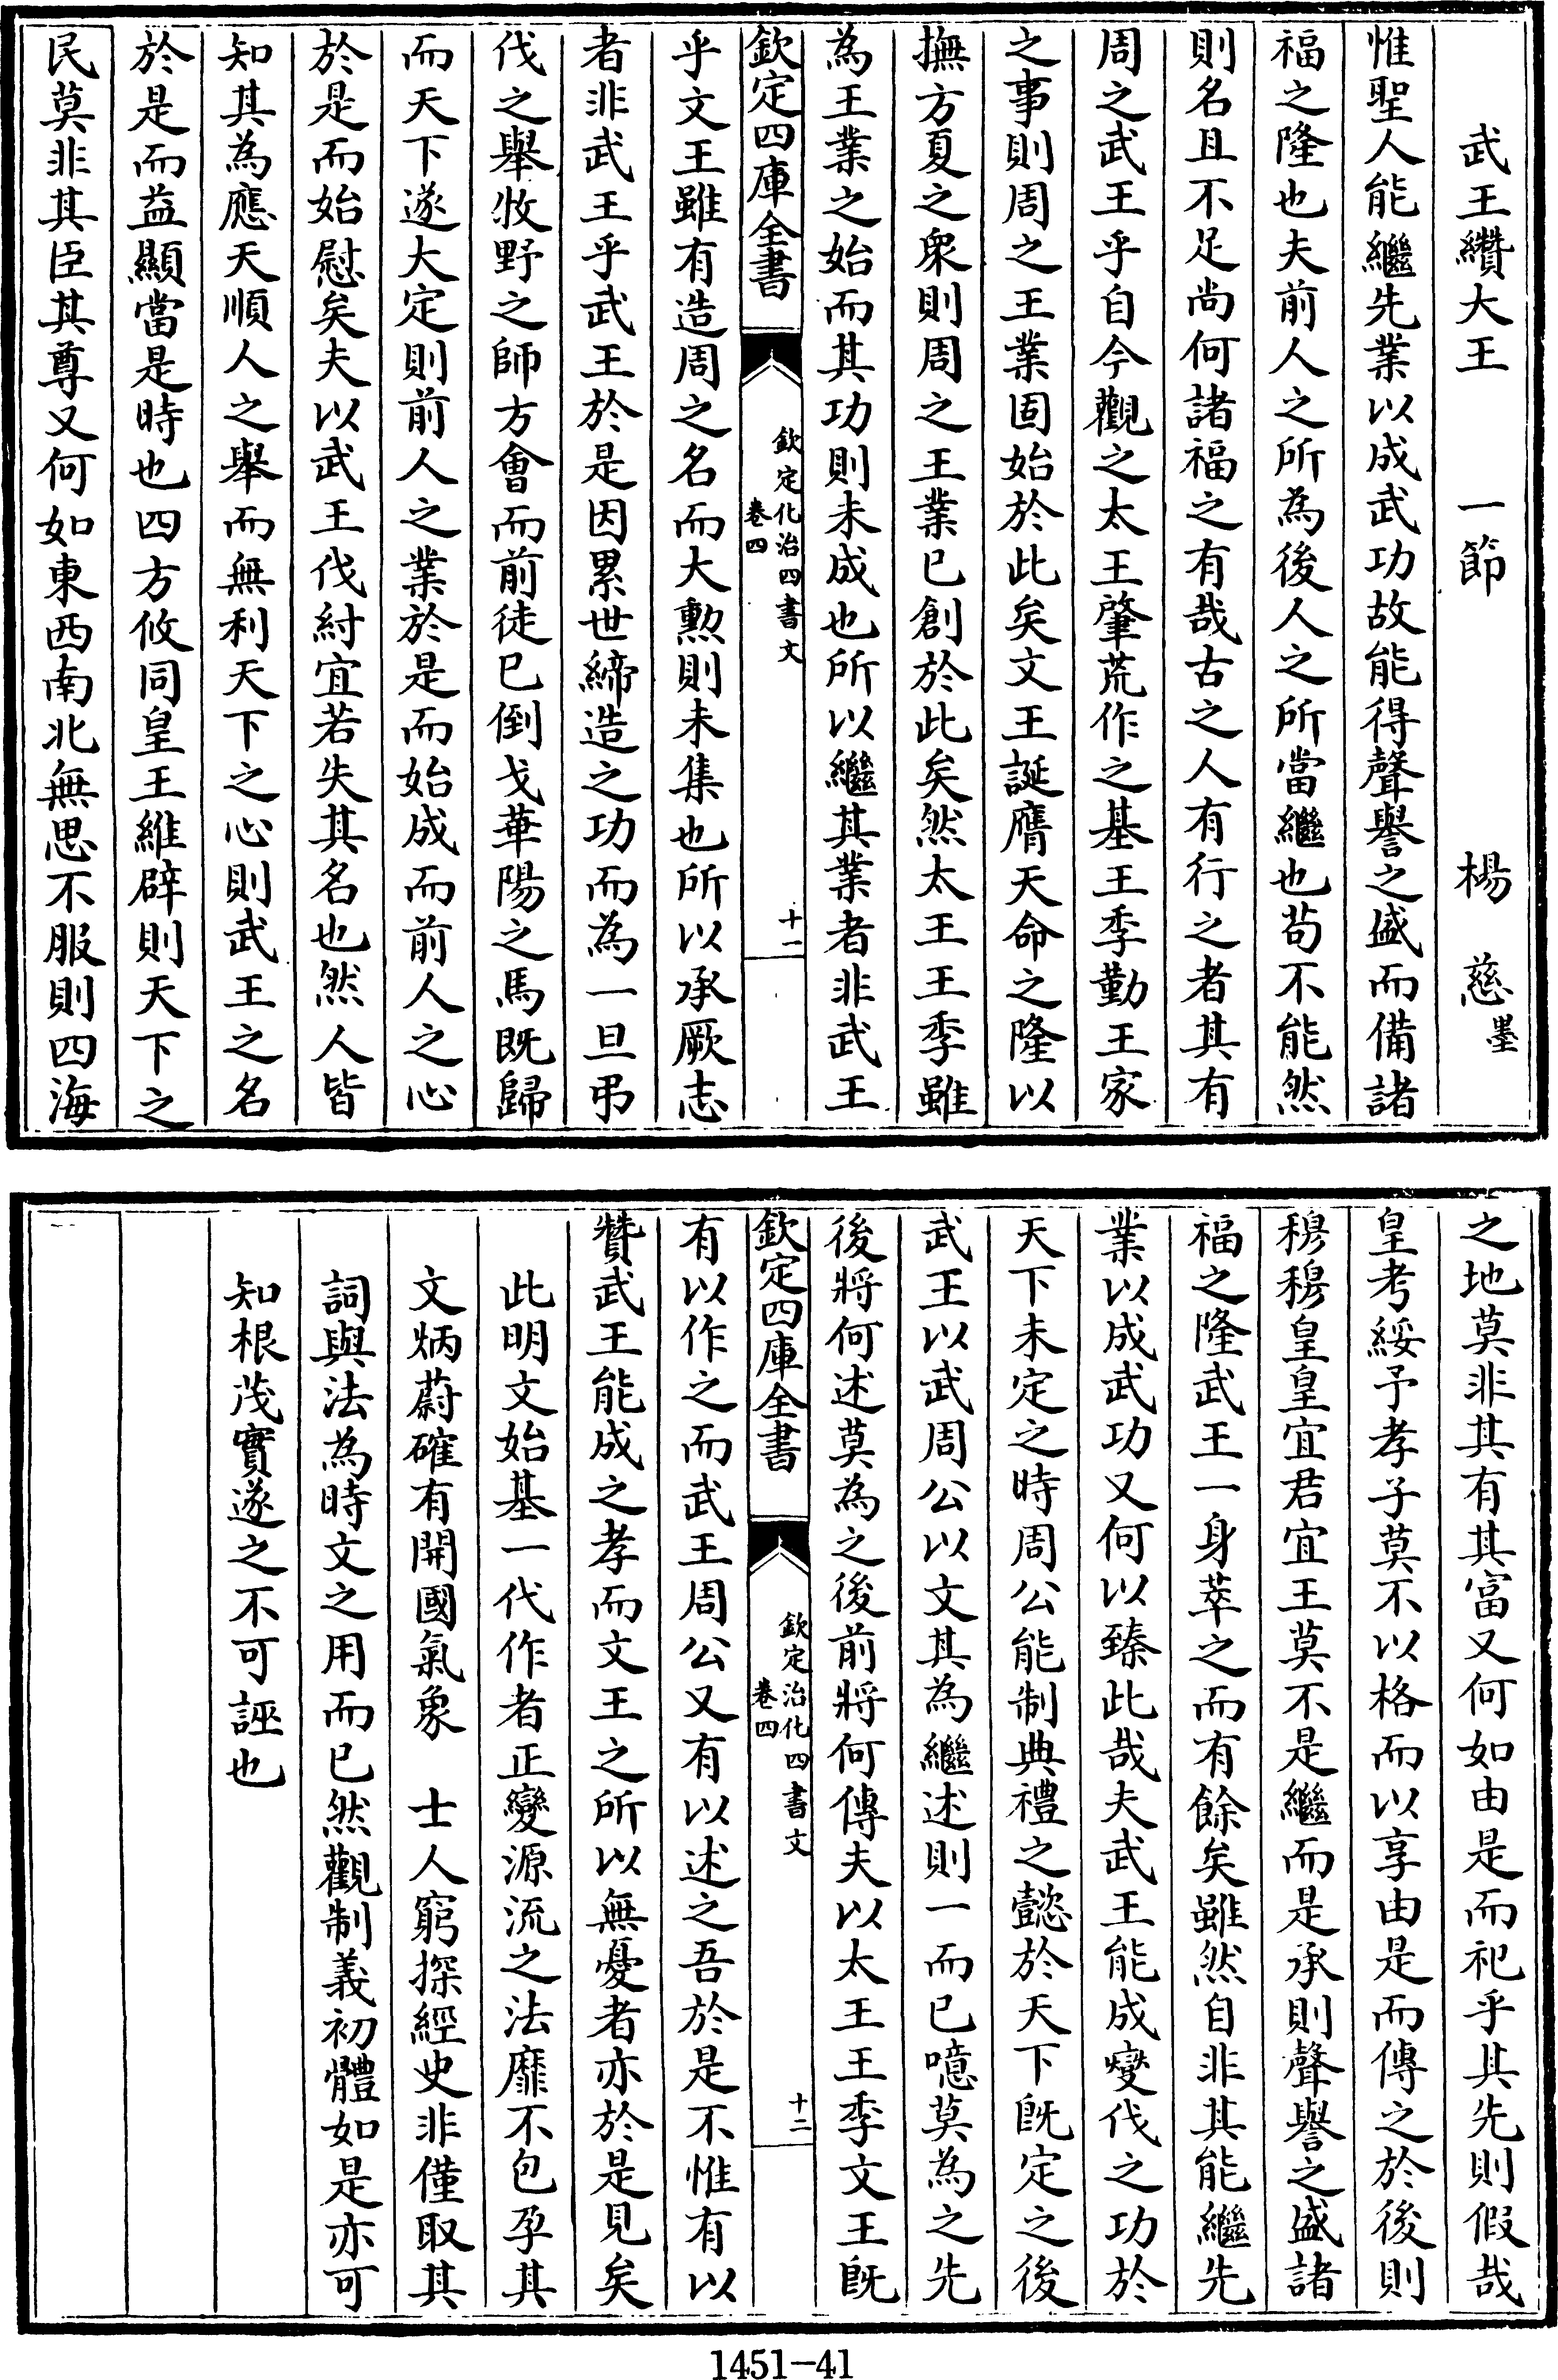 武王纘大王　一節　楊　慈墨
惟聖人能繼先業以成武功故能得聲譽之盛而備諸
福之隆也夫前人之所為後人之所當繼也苟不能然
則名且不足尚何諸福之有哉古之人有行之者其有
周之武王乎自今觀之太王肇荒作之基王季勤王家
之事則周之王業固始於此矣文王誕膺天命之隆以
撫方夏之衆則周之王業已創於此矣然太王王季雖
為王業之始而其功則未成也所以繼其業者非武王
欽定四庫全書
欽定化治四書文
卷四
十一
乎文王雖有造周之名而大勲則未集也所以承厥志
者非武王乎武王於是因累世締造之功而為一旦弔
伐之舉牧野之師方會而前徒已倒戈華陽之馬既歸
而天下遂大定則前人之業於是而始成而前人之心
於是而始慰矣夫以武王伐紂宜若失其名也然人皆
知其為應天順人之舉而無利天下之心則武王之名
於是而益顯當是時也四方攸同皇王維辟則天下之
民莫非其臣其尊又何如東西南北無思不服則四海
之地莫非其有其富又何如由是而祀乎其先則假哉
皇考綏予孝子莫不以格而以享由是而傳之於後則
穆穆皇皇宜君宜王莫不是繼而是承則聲譽之盛諸
福之隆武王一身萃之而有餘矣雖然自非其能繼先
業以成武功又何以臻此哉夫武王能成變伐之功於
天下未定之時周公能制典禮之懿於天下既定之後
武王以武周公以文其為繼述則一而已噫莫為之先
後將何述莫為之後前將何傳夫以太王王季文王既
欽定四庫全書
欽定治化四書文
卷四
十二
有以作之而武王周公又有以述之吾於是不惟有以
贊武王能成之孝而文王之所以無憂者亦於是見矣
此明文始基一代作者正變源流之法靡不包孕其
文炳蔚確有開國氣象　士人窮探經史非僅取其
詞與法為時文之用而已然觀制義初體如是亦可
知根茂實遂之不可誣也
1451-41